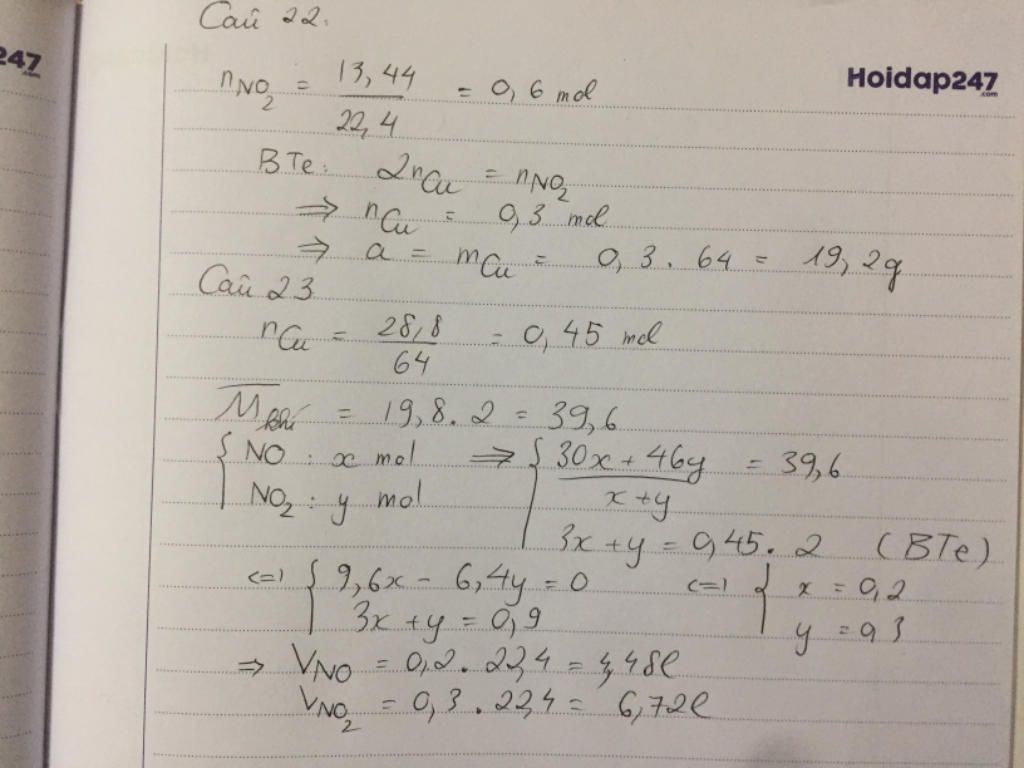 Câu 22.
247
.com
Hoidap247
.com
nNO₂ = 13,44 / 22,4 = 0,6 mol
BTe: 2nCu = nNO₂
⇒ nCu = 0,3 mol
⇒ a = mCu = 0,3 . 64 = 19,2g
Câu 23
nCu = 28,8 / 64 = 0,45 mol
M̅khí = 19,8.2 = 39,6
{ NO : x mol ⇒ { (30x + 46y) / (x + y) = 39,6
NO₂ : y mol
3x + y = 0,45.2 (BTe)
<=> { 9,6x - 6,4y = 0 <=> { x = 0,2
3x + y = 0,9 y = 0,3
⇒ VNO = 0,2 . 22,4 = 4,48l
VNO₂ = 0,3 . 22,4 = 6,72l